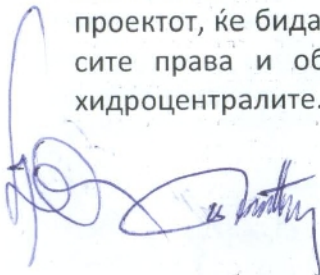 проектот, ќе бида
сите права и об
хидроцентралите.